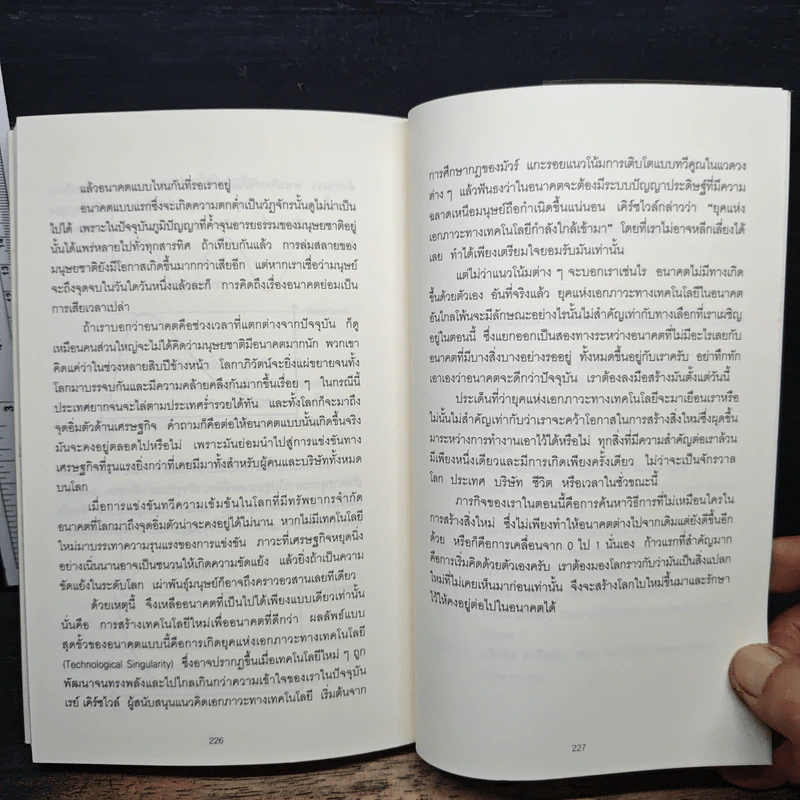 แล้วอนาคตแบบไหนกันที่รอเราอยู่
อนาคตแบบแรกซึ่งจะเกิดความตกต่ำเป็นวัฏจักรนั้นดูไม่น่าเป็น
ไปได้ เพราะในปัจจุบันภูมิปัญญาที่ค้ำจุนอารยธรรมของมนุษยชาติอยู่
นั้นได้แพร่หลายไปทั่วทุกสารทิศ ถ้าเทียบกันแล้ว การล่มสลายของ
มนุษยชาติยังมีโอกาสเกิดขึ้นมากกว่าเสียอีก แต่หากเราเชื่อว่ามนุษย์
จะถึงจุดจบในวันใดวันหนึ่งแล้วละก็ การคิดถึงเรื่องอนาคตย่อมเป็น
การเสียเวลาเปล่า
ถ้าเราบอกว่าอนาคตคือช่วงเวลาที่แตกต่างจากปัจจุบัน ก็ดู
เหมือนคนส่วนใหญ่จะไม่ได้คิดว่ามนุษยชาติมีอนาคตมากนัก พวกเขา
คิดแค่ว่าในช่วงหลายสิบปีข้างหน้า โลกาภิวัตน์จะยิ่งแผ่ขยายจนทั้ง
โลกมาบรรจบกันและมีความคล้ายคลึงกันมากขึ้นเรื่อย ๆ ในกรณีนี้
ประเทศยากจนจะไล่ตามประเทศร่ำรวยได้ทัน และทั้งโลกก็จะมาถึง
จุดอิ่มตัวด้านเศรษฐกิจ คำถามก็คือต่อให้อนาคตแบบนั้นเกิดขึ้นจริง
มันจะคงอยู่ตลอดไปหรือไม่ เพราะมันย่อมนำไปสู่การแข่งขันทาง
เศรษฐกิจที่รุนแรงยิ่งกว่าที่เคยมีมาทั้งสำหรับผู้คนและบริษัททั้งหมด
บนโลก
เมื่อการแข่งขันทวีความเข้มข้นในโลกที่มีทรัพยากรจำกัด
อนาคตที่โลกมาถึงจุดอิ่มตัวน่าจะคงอยู่ได้ไม่นาน หากไม่มีเทคโนโลยี
ใหม่มาบรรเทาความรุนแรงของการแข่งขัน ภาวะที่เศรษฐกิจหยุดนิ่ง
อย่างเนิ่นนานอาจเป็นชนวนให้เกิดความขัดแย้ง แล้วยิ่งถ้าเป็นความ
ขัดแย้งในระดับโลก เผ่าพันธุ์มนุษย์ก็อาจถึงคราวอวสานเลยทีเดียว
ด้วยเหตุนี้ จึงเหลืออนาคตที่เป็นไปได้เพียงแบบเดียวเท่านั้น
นั่นคือ การสร้างเทคโนโลยีใหม่เพื่ออนาคตที่ดีกว่า ผลลัพธ์แบบ
สุดขั้วของอนาคตแบบนี้คือการเกิดยุคแห่งเอกภาวะทางเทคโนโลยี
(Technological Singularity) ซึ่งอาจปรากฏขึ้นเมื่อเทคโนโลยีใหม่ ๆ ถูก
พัฒนาจนทรงพลังและไปไกลเกินกว่าความเข้าใจของเราในปัจจุบัน
เรย์ เคิร์ซไวล์ ผู้สนับสนุนแนวคิดเอกภาวะทางเทคโนโลยี เริ่มต้นจาก
226
การศึกษากฎของมัวร์ แกะรอยแนวโน้มการเติบโตแบบทวีคูณในแวดวง
ต่าง ๆ แล้วฟันธงว่าในอนาคตจะต้องมีระบบปัญญาประดิษฐ์ที่มีความ
ฉลาดเหนือมนุษย์ถือกำเนิดขึ้นแน่นอน เคิร์ซไวล์กล่าวว่า “ยุคแห่ง
เอกภาวะทางเทคโนโลยีกำลังใกล้เข้ามา” โดยที่เราไม่อาจหลีกเลี่ยงได้
เลย ทำได้เพียงเตรียมใจยอมรับมันเท่านั้น
แต่ไม่ว่าแนวโน้มต่าง ๆ จะบอกเราเช่นไร อนาคตไม่มีทางเกิด
ขึ้นด้วยตัวเอง อันที่จริงแล้ว ยุคแห่งเอกภาวะทางเทคโนโลยีในอนาคต
อันไกลโพ้นจะมีลักษณะอย่างไรนั้นไม่สำคัญเท่ากับทางเลือกที่เราเผชิญ
อยู่ในตอนนี้ ซึ่งแยกออกเป็นสองทางระหว่างอนาคตที่ไม่มีอะไรเลยกับ
อนาคตที่มีบางสิ่งบางอย่างรออยู่ ทั้งหมดขึ้นอยู่กับเราครับ อย่าทึกทัก
เอาเองว่าอนาคตจะดีกว่าปัจจุบัน เราต้องลงมือสร้างมันตั้งแต่วันนี้
ประเด็นที่ว่ายุคแห่งเอกภาวะทางเทคโนโลยีจะมาเยือนเราหรือ
ไม่นั้นไม่สำคัญเท่ากับว่าเราจะคว้าโอกาสในการสร้างสิ่งใหม่ซึ่งผุดขึ้น
มาระหว่างการทำงานเอาไว้ได้หรือไม่ ทุกสิ่งที่มีความสำคัญต่อเราล้วน
มีเพียงหนึ่งเดียวและมีการเกิดเพียงครั้งเดียว ไม่ว่าจะเป็นจักรวาล
โลก ประเทศ บริษัท ชีวิต หรือเวลาในชั่วขณะนี้
ภารกิจของเราในตอนนี้คือการค้นหาวิธีการที่ไม่เหมือนใครใน
การสร้างสิ่งใหม่ ซึ่งไม่เพียงทำให้อนาคตต่างไปจากเดิมแต่ยังดีขึ้นอีก
ด้วย หรือก็คือการเคลื่อนจาก 0 ไป 1 นั่นเอง ก้าวแรกที่สำคัญมาก
คือการเริ่มคิดด้วยตัวเองครับ เราต้องมองโลกราวกับว่ามันเป็นสิ่งแปลก
ใหม่ที่ไม่เคยเห็นมาก่อนเท่านั้น จึงจะสร้างโลกใบใหม่ขึ้นมาและรักษา
ไว้ให้คงอยู่ต่อไปในอนาคตได้
227